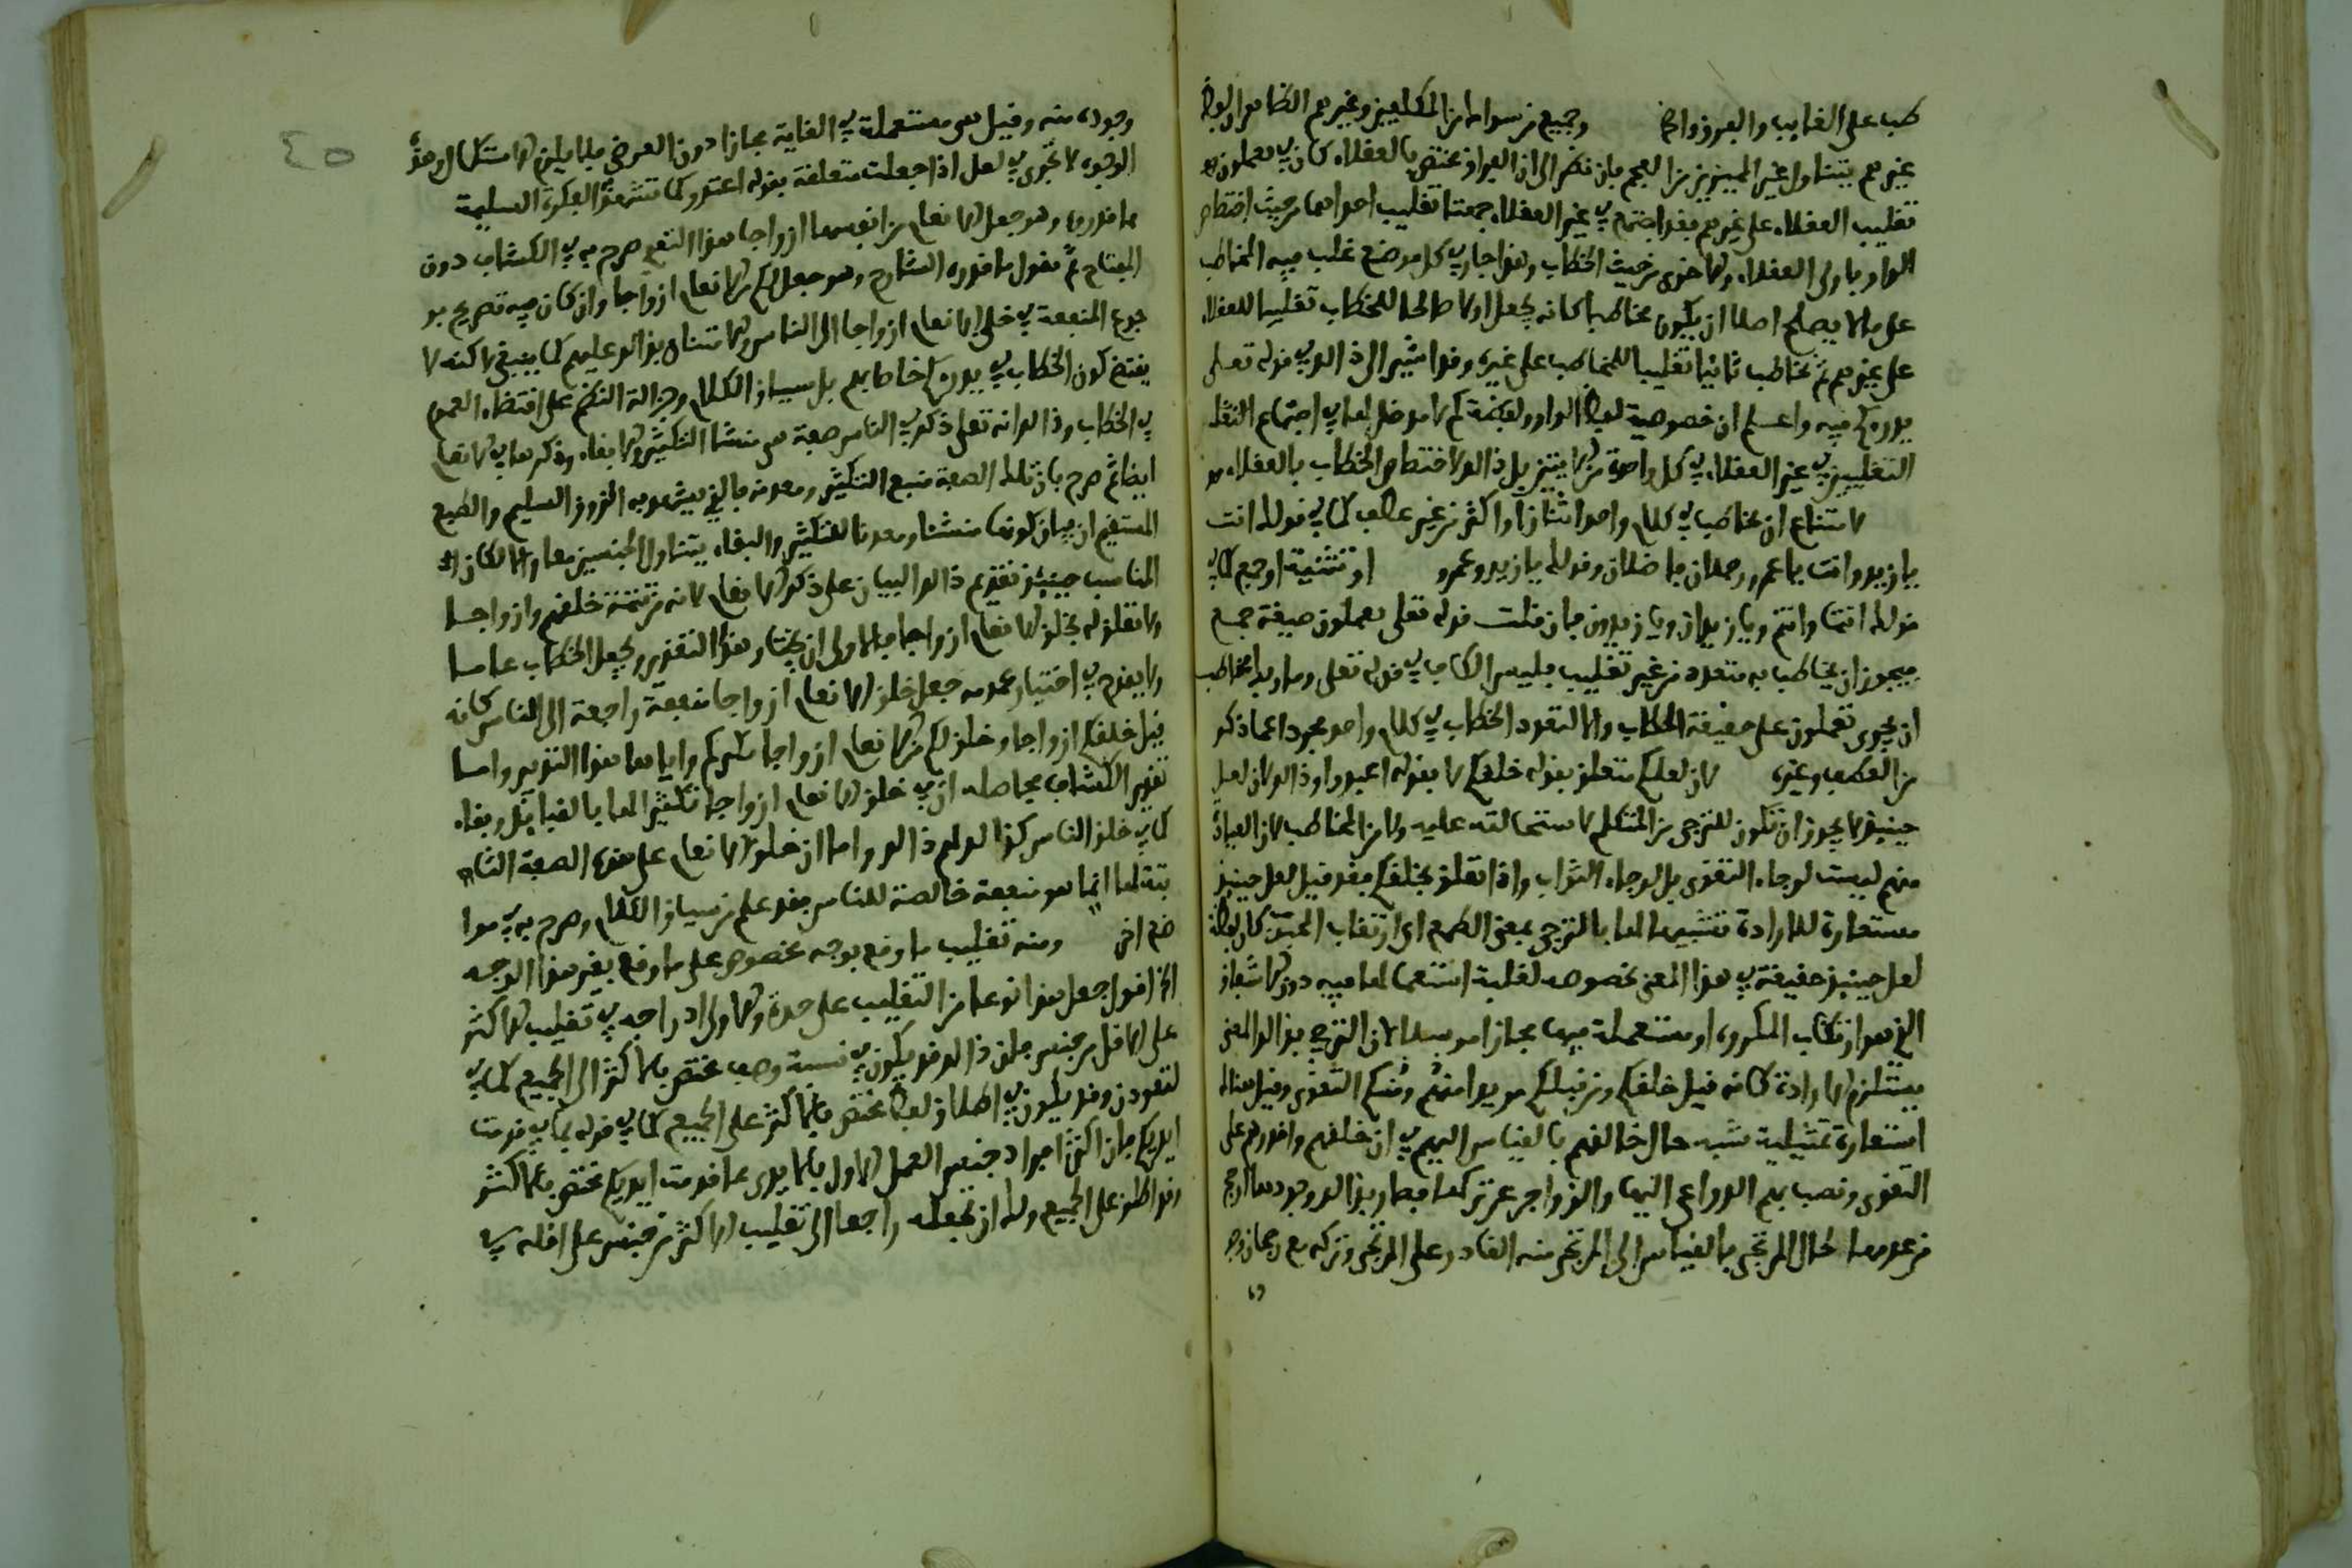 طب على الغايب والفرق واضح وجميع من سواه من المكلفين وغيرهم الظاهر ان لفظ
غيرهم يتناول غير المميزين من العجم فان نظر الى ان الواو مختص بالعقلاء كان في يعملون
تغليب العقلاء على غيرهم فقد اجتمع في غير العقلاء جهتا تغليب احداهما من حيث اختصاص
الواو باولى العقلاء والاخرى من حيث الخطاب وهذا جار في كل موضع غلب فيه المخاطب
على ما لا يصلح اصلا ان يكون مخاطبا كانه يجعل اولا صالحا للخطاب تغليبا للعقلاء
على غيرهم ثم مخاطب ثانيا تغليبا للمخاطب على غيره وقد اشير الى ذالك في قوله تعلى
يذرؤكم فيه واعلم ان خصوصية لفظ الواو ولفظة كم لا مدخل لها في اجتماع
التغليبين في غير العقلاء في كل واحدة من الايتين بل ذالك لاختصاص الخطاب بالعقلاء
لامتناع ان يخاطب في كلام واحد اثنان او اكثر من غير عطف كما في قولك انت
يا زيد وانت يا عمرو رجلان فاضلان وقولك يا زيد وعمرو او تثنية او جمع كما في
قولك انتما وانتم ويا زيدان ويا زيدون فان قلت قوله تعلى يعملون صيغة جمع
فيجوز ان يخاطب به متعدد من غير تغليب فليس الكاف في قوله تعلى وما ربك مخاطب
ان يجرى تعملون على حقيقة الخطاب والا لتعدد الخطاب في كلام واحد مجردا عما ذكر
من العطف وغيره لان لعلكم متعلق بقوله خلقكم لا بقوله اعبدوا وذالك لان لعل
حينئذ لا يجوز ان تكون للترجى من المتكلم لاستحالته عليه ولا من المخاطب لان العبادة
منهم ليست لرجاء التقوى بل لرجاء الثواب واذا تعلق بخلقكم فقد قيل لعل حينئذ
مستعارة للارادة تشبيها لها بالترجى بمعنى الطمع اى ارتقاب المحبوب كان لفظة
لعل حينئذ حقيقة في هذا المعنى بخصوصه لغلبة استعمالها فيه دون الاشفاق
الذى هو ارتقاب المكروه او مستعملة فيها مجازا مرسلا لان الترجى بذالك المعنى
يستلزم الارادة كانه قيل خلقكم ومن قبلكم مريدا منهم ومنكم التقوى وقيل هناك
استعارة تمثيلية شبه حال خالقهم بالقياس اليهم في ان خلقهم واقدرهم على
التقوى ونصب لهم الدواعى اليها والزواجر عن تركها فصار بذالك وجودها ارجح
من عدمها لحال المرتجى بالقياس الى المرتجى منه القادر على المرتجى وتركه مع رجحان
وجوده منه وقيل هى مستعملة في الغاية مجازا دون الغرض فلا يلزم الاستكمال وهذه
الوجوه لا تجرى في لعل اذا جعلت متعلقة بقوله اعبدوا كما تشهد الفكرة السليمة
ما قدره وهو جعل الانعام من انفسها ازواجا هذا التقدير صرح به في الكشاف دون
المفتاح ثم نقول ما قدره الشارح وهو جعل لكم من الانعام ازواجا وان كان فيه تصريح
جوع المنفعة في خلق الانعام ازواجا الى الناس والامتنان بذالك عليهم كما ينبغى لاكنه لا
يقتضى كون الخطاب في يذرؤكم خاصا بهم بل سياق الكلام وجزالة النظم على اقتضاء العموم
في الخطاب وذالك انه تعلى ذكر في الناس صفة هى منشا التكثير والابقاء وذكرها في الانعام
ايضا ثم صرح بان تلك الصفة منبع التكثير ومعدنه فالذى يشهد به الذوق السليم والطبع
المستقيم ان بيان كونها منشئا ومعدنا للتكثير والبقاء يتناول الجنسين معا والا لكان
المناسب حينئذ تقديم ذالك البيان على ذكر الانعام لانه من تتمة خلقهم وازواجا
ولا تعلق له بخلق الانعام ازواجا فالاولى ان يختار هذا التقدير ويجعل الخطاب عاما
ولا يقدح في اختيار عمومه جعل خلق الانعام ازواجا منفعة راجعة الى الناس كانه
قيل خلقكم ازواجا وخلق لكم من الانعام ازواجا يكثركم واياها هذا التدبير واما
تقدير الكشاف فحاصله ان في خلق الانعام ازواجا تكثيرا لها بالقبائل وبقاء
كما في خلق الناس كذالك لهم ذالك واما ان خلق الانعام على هذه الصفة الثا
بتة لها انما هو منفعة خالصة للناس فقد علم من سياق الكلام وصرح به في موا
ضع اخر ومنه تغليب ما وقع بوجه مخصوص على ما وقع بغير هذا الوجه
الخ اقول جعل هذا نوعا من التغليب على حدة والاولى ادراجه في تغليب الاكثر
على الاقل من جنس فان ذالك قد يكون في نسبة وصف مختص بالاكثر الى الجميع كما في
لتعودن وقد يكون في اطلاق لفظ مختص بالاكثر على الجميع كما في قوله بما قدمت
ايديكم فان اكثر افراد جنس العمل الاول بالايدى فما قدمت ايديكم مختص بالاكثر
وقد اطلق على الجميع ولك ان تجعله راجعا الى تغليب الاكثر من جنس على اقله في